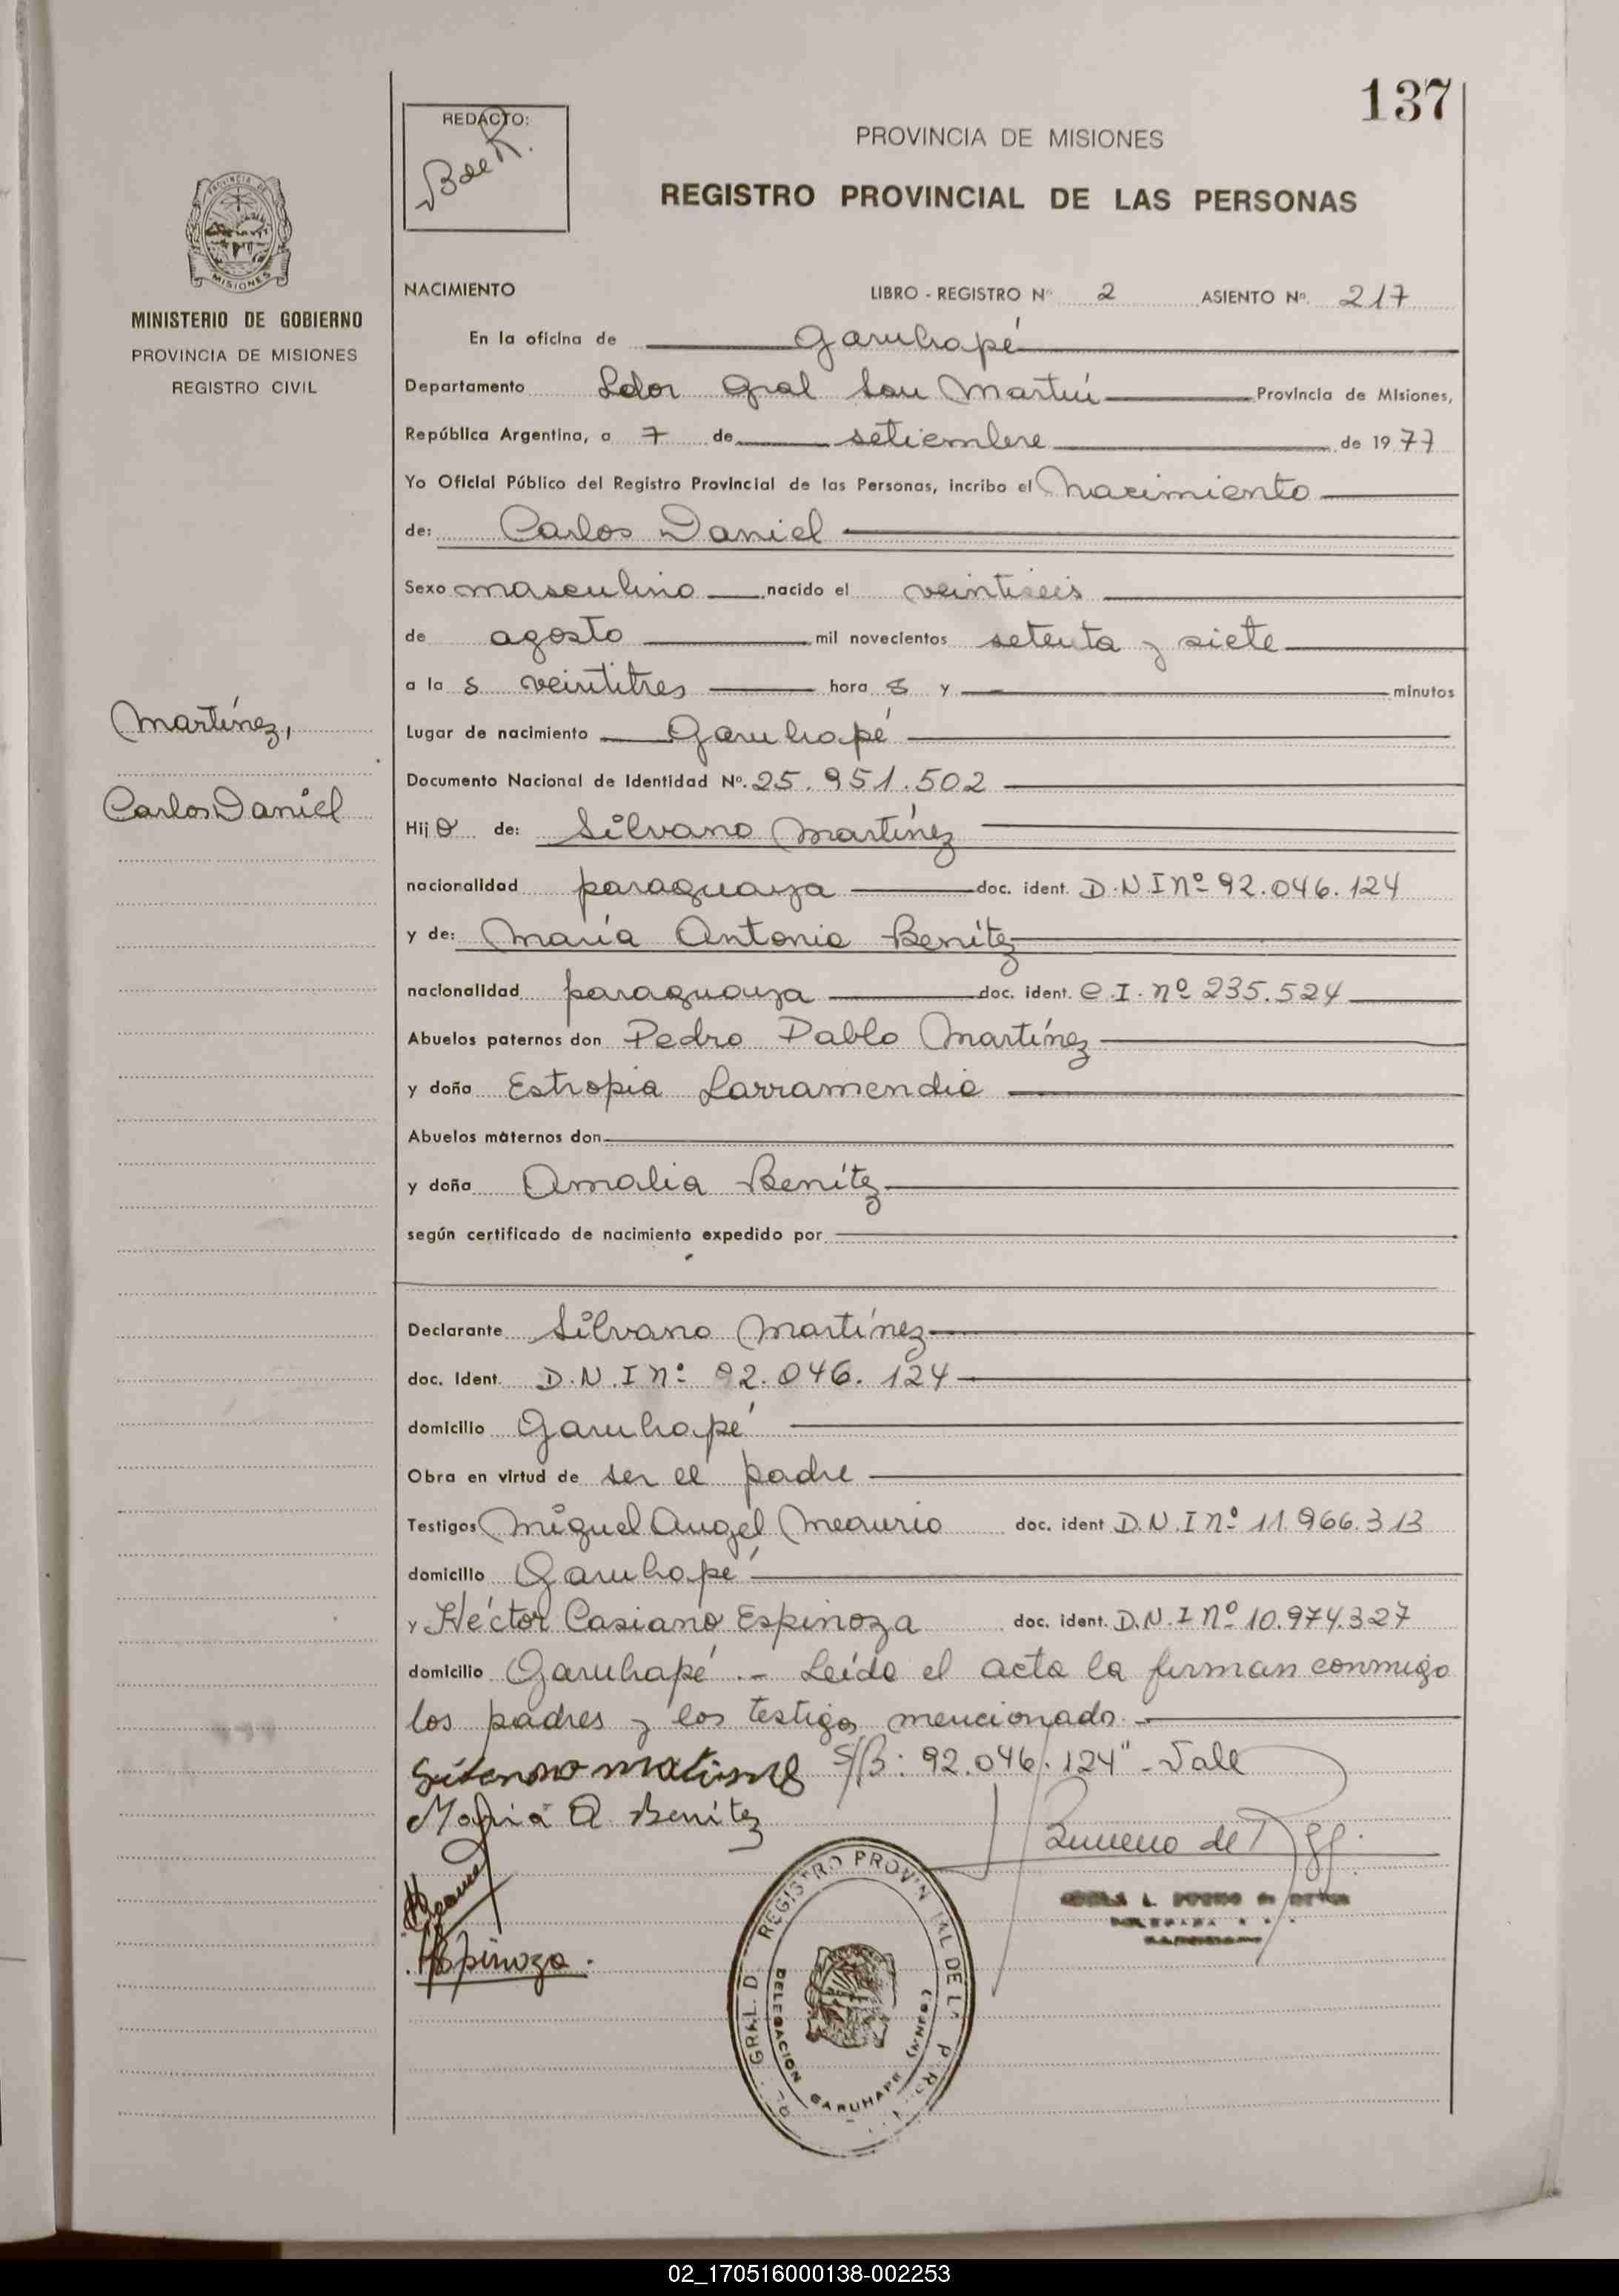 137
REDACTO:
B de R.
PROVINCIA DE MISIONES
REGISTRO PROVINCIAL DE LAS PERSONAS
PROVINCIA DE
MISIONES
MINISTERIO DE GOBIERNO
PROVINCIA DE MISIONES
REGISTRO CIVIL
NACIMIENTO LIBRO - REGISTRO Nº 2 ASIENTO Nº 217
En la oficina de Garuhapé
Departamento Ldor Gral San Martín Provincia de Misiones,
República Argentina, a 7 de setiembre de 1977
Yo Oficial Público del Registro Provincial de las Personas, incribo el Nacimiento
de: Carlos Daniel
Sexo masculino nacido el veintiseis
de agosto mil novecientos setenta y siete
a la s veintitres hora s y minutos
Martínez,
Carlos Daniel
Lugar de nacimiento Garuhapé
Documento Nacional de Identidad Nº. 25.951.502
Hij o de: Silvano Martínez
nacionalidad paraguaya doc. ident. D.N.I nº 92.046.124
y de: María Antonia Benítez
nacionalidad paraguaya doc. ident. C.I. nº 235.524
Abuelos paternos don Pedro Pablo Martínez
y doña Estropia Larramendia
Abuelos maternos don
y doña Amalia Benítez
según certificado de nacimiento expedido por
Declarante Silvano Martínez
doc. Ident. D.N.I nº 92.046.124
domicilio Garuhapé
Obra en virtud de ser el padre
Testigos Miguel Angel Meaurio doc. ident D.N.I nº 11.966.313
domicilio Garuhapé
y Héctor Casiano Espinoza doc. ident. D.N.I nº 10.974.327
domicilio Garuhapé .- Leída el acta la firman conmigo
los padres y los testigos mencionado.-
S/B: 92.046.124" - Vale
María A. Benítez
Espinoza.
REGISTRO PROVIN IAL DE LA
DELEGACION GARUHAPE (MNES.)
02_170516000138-002253